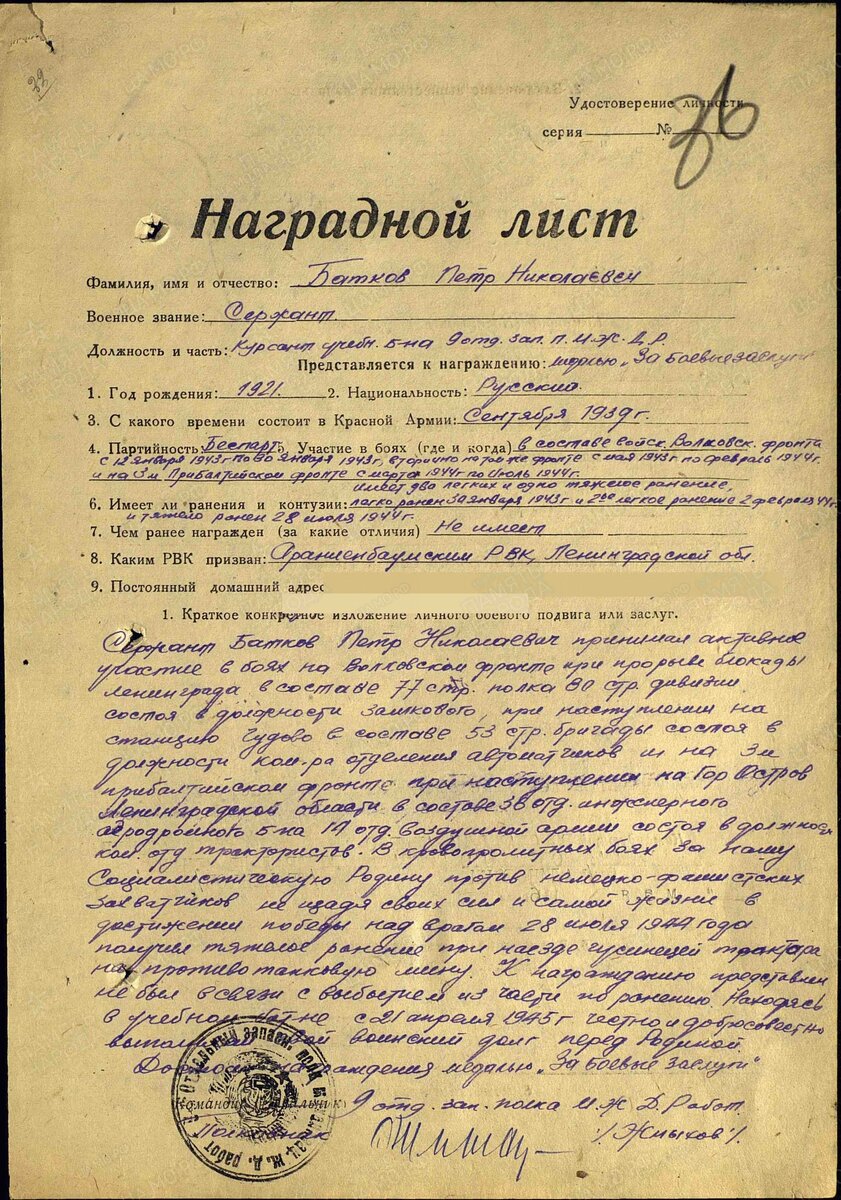 39
Удостоверение личности
серия № 76
Наградной лист
Фамилия, имя и отчество: Батков Петр Николаевич
Военное звание: Сержант
Должность и часть: Курсант учебн. б-на 9 отд. зап. п. М.Ж.Д.Р.
Представляется к награждению: медалью „За боевые заслуги"
1. Год рождения: 1921. 2. Национальность: Русский
3. С какого времени состоит в Красной Армии: Сентября 1939 г.
4. Партийность Беспарт. 5. Участие в боях (где и когда) в составе войск Волховск. фронта
с 12 января 1943 г. по 30 января 1943 г. вторично на том же фронте с мая 1943 г. по февраль 1944 г.
и на 3м Прибалтийском фронте с марта 1944 г. по Июль 1944 г.
имеет два легких и одно тяжелое ранение,
6. Имеет ли ранения и контузии: легко ранен 30 января 1943 г и 2ое легкое ранение 2 февраля 44 г.
и тяжело ранен 28 июля 1944 г.
7. Чем ранее награжден (за какие отличия) Не имеет
8. Каким РВК призван: Ораниенбаумским РВК, Ленинградской обл.
9. Постоянный домашний адрес
1. Краткое конкретное изложение личного боевого подвига или заслуг.
Сержант Батков Петр Николаевич принимал активное
участие в боях на Волховском фронте при прорыве блокады
Ленинграда в составе 77 стр. полка 80 стр. дивизии
состоя в должности замкового, при наступлении на
станцию Чудово в составе 53 стр. бригады состоя в
должности ком-ра отделения автоматчиков и на 3м
прибалтийском фронте при наступлении на Гор Остров
Ленинградской области в составе 38 отд. инжэерного
аэродромного б-на 14 отд. воздушной армии состоя в должност
ком. отд трактористов. В кровопролитных боях за нашу
Социалистическую Родину против немецко-фашистских
захватчиков не щадя своих сил и самой жизни в
достижении победы над врагом 28 июля 1944 года
получил тяжелое ранение при наезде гусиницей трактара
на противотанковую мину. К награждению представлен
не был в связи с выбытием из части по ранению. Находясь
в учебном бат-не с 21 апреля 1945 г честно и добросовестно
выполняет свой воинский долг перед Родиной.
Достоин награждения медалью „За боевые заслуги"
Командир (Начальник) 9 отд. зап. полка М.Ж.Д. Работ.
Полковник /Жмыхов/.
Отдельный запасн. полк